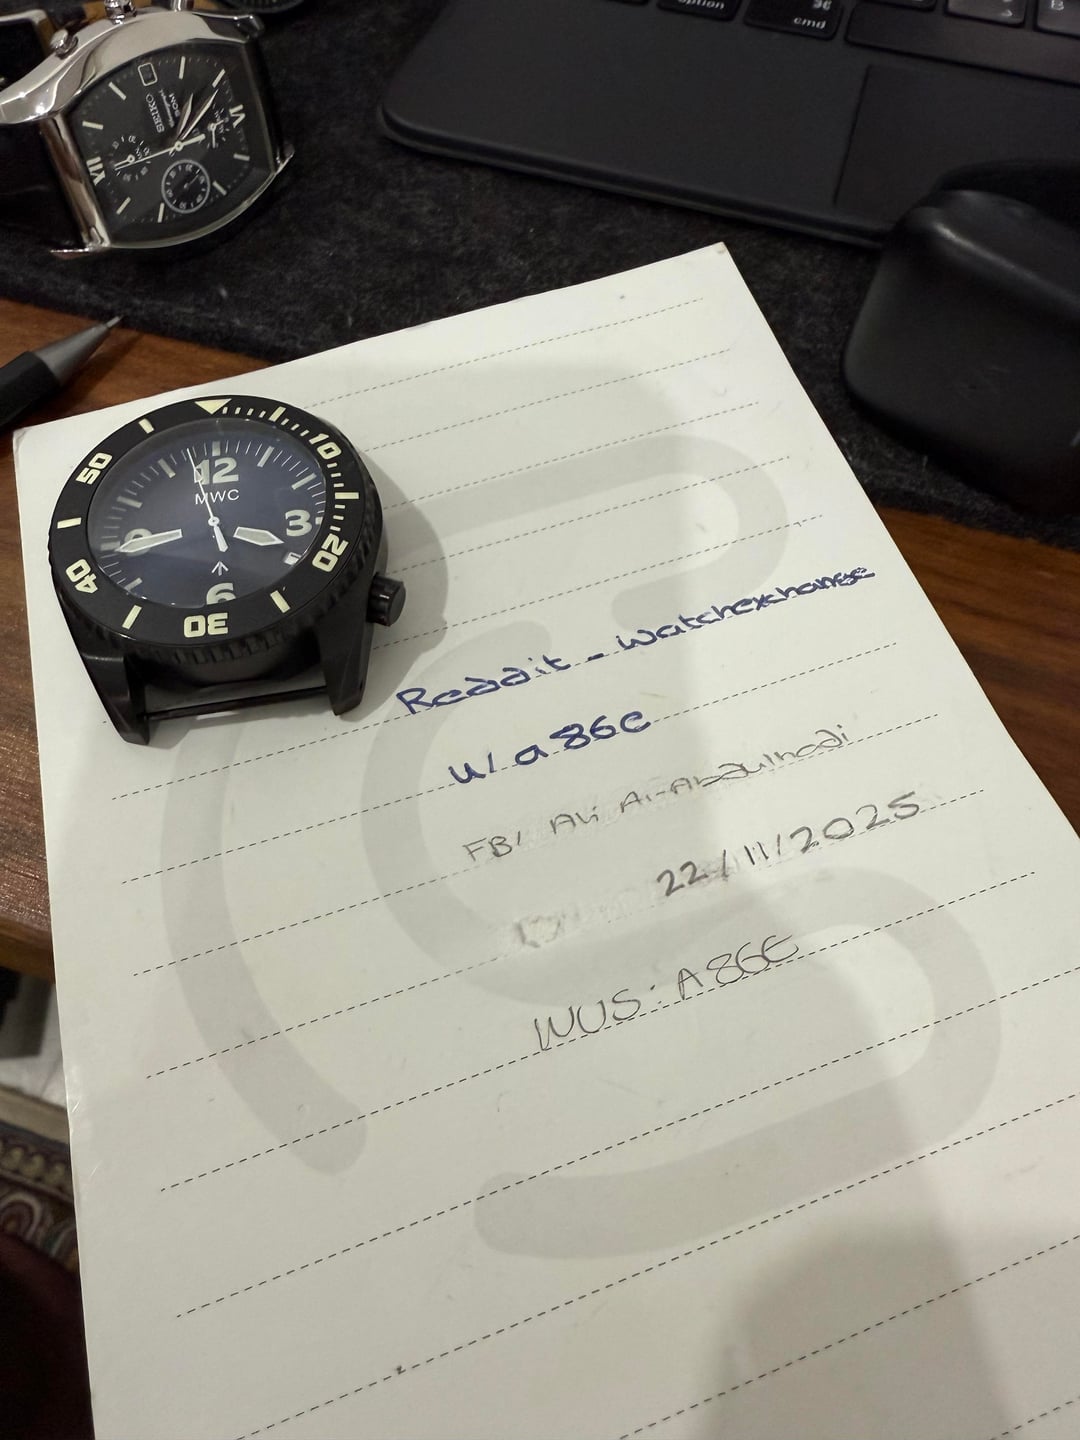 option
⌘
cmd
B
SEIKO
50M
VI
VII
10
20
30
40
50
12
MWC
3
9
6
Reddit - watchexchange
u/ a86e
FB/ Ali Al-Abdulhadi
22/11/2025
WUS: A86E